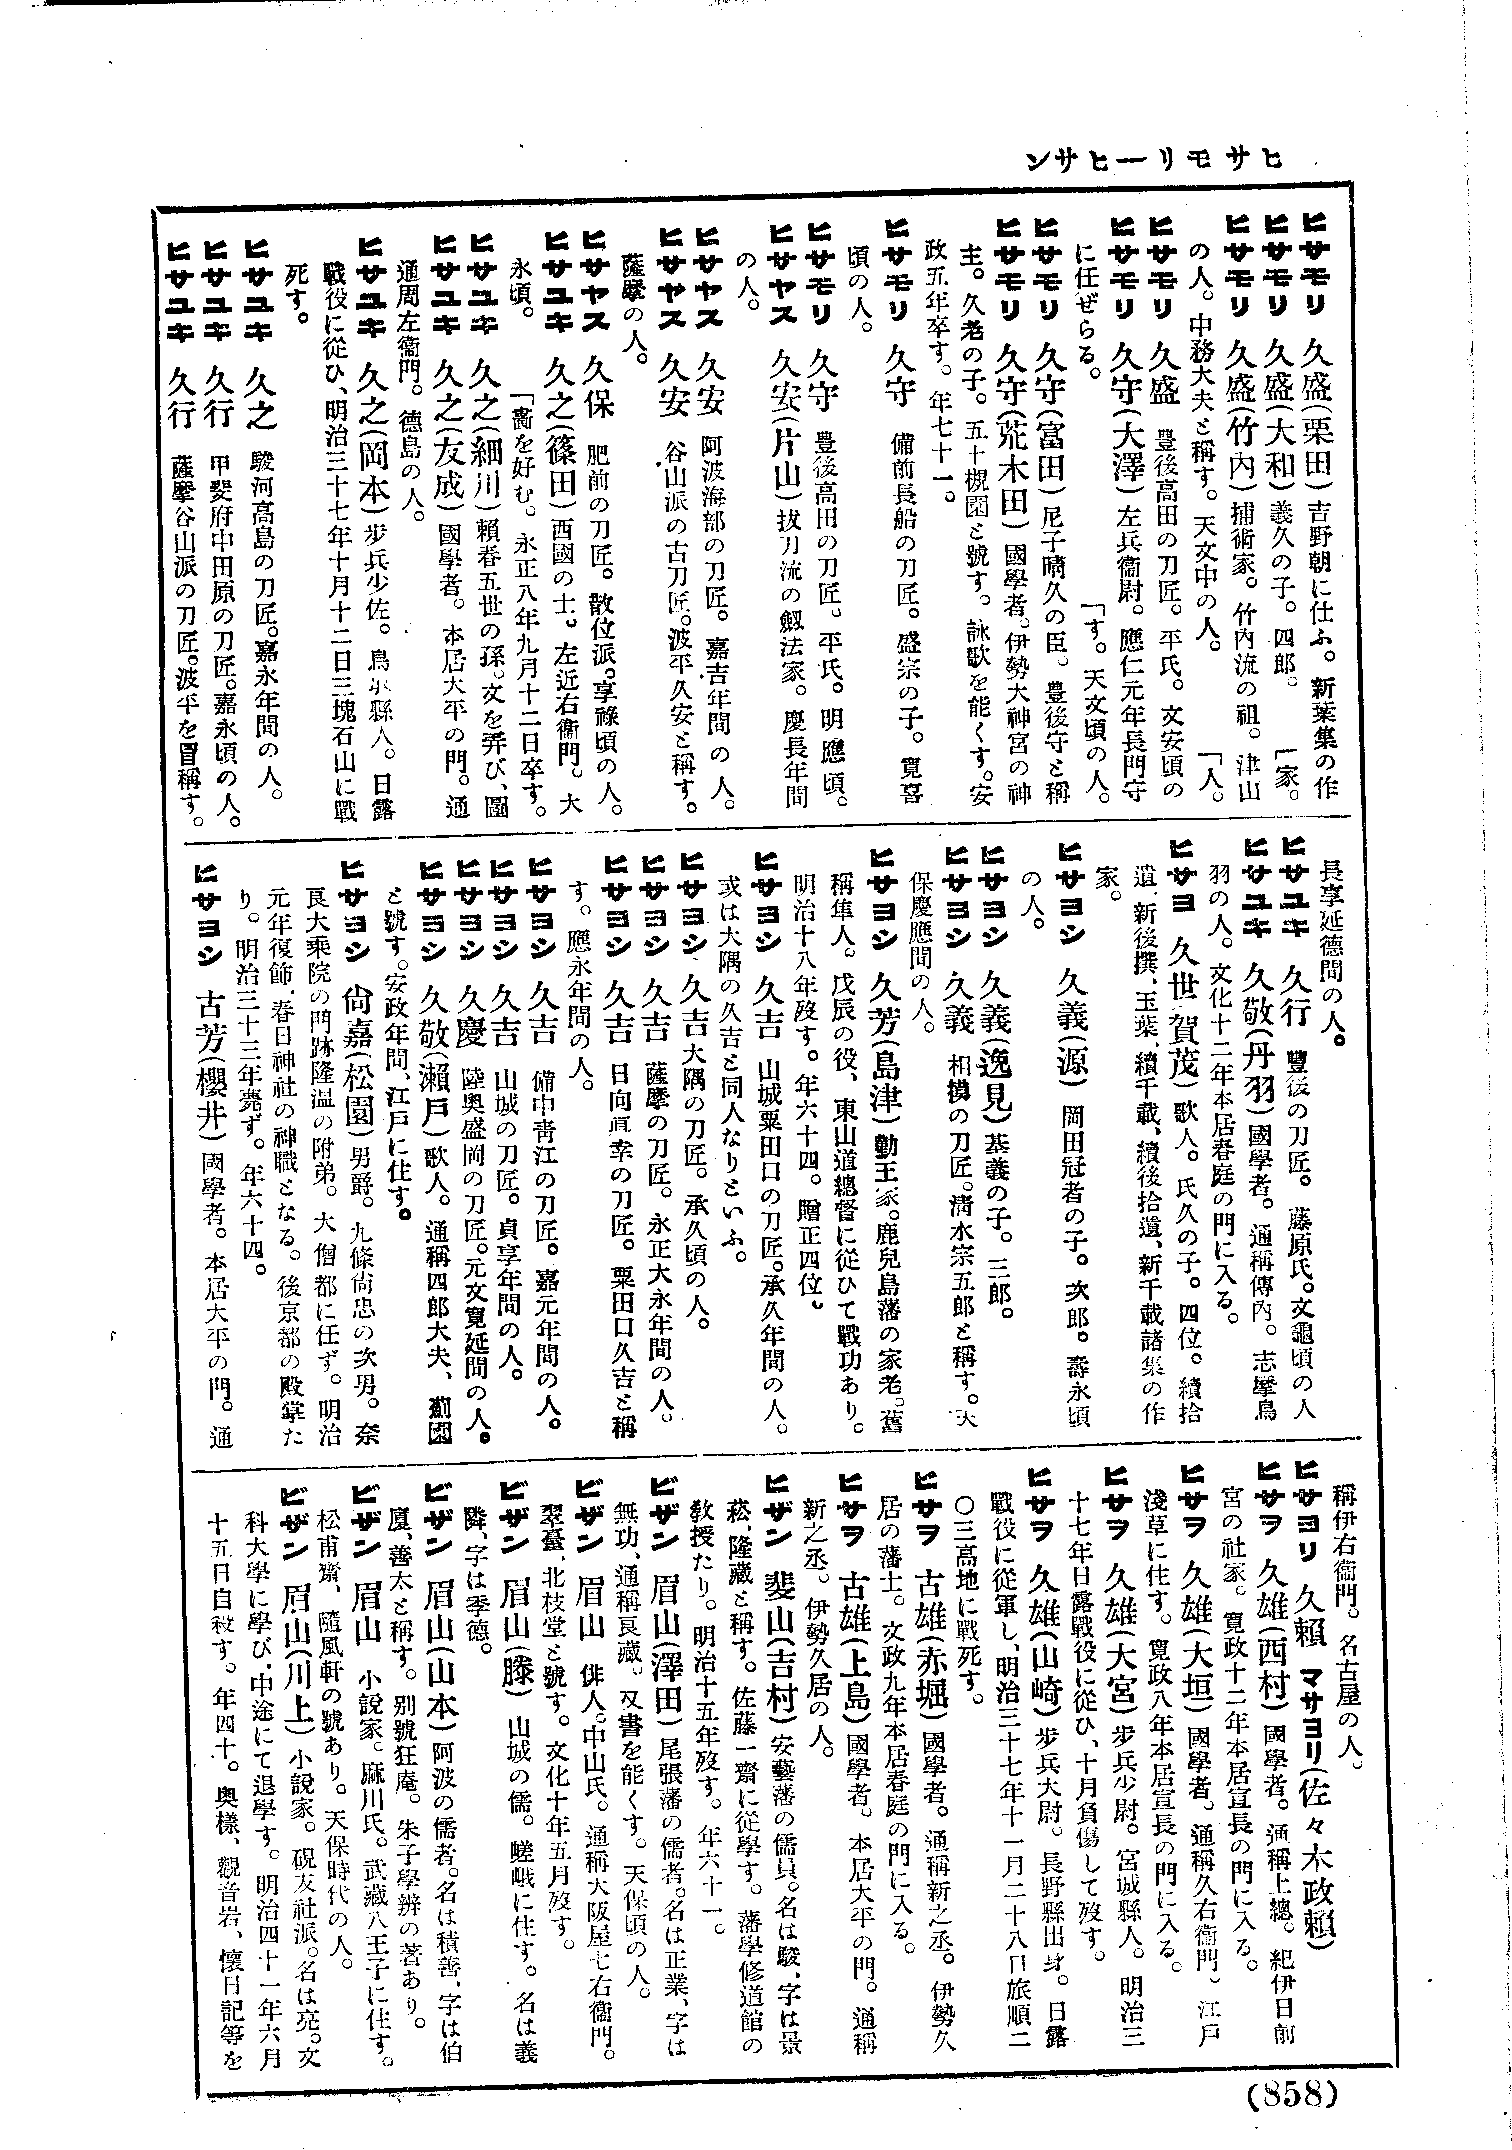 ヒサモリ―ヒサン
ヒサモリ 久盛(栗田)吉野朝に仕ふ。新葉集の作
ヒサモリ 久盛(大和)義久の子。四郎。 「家。
ヒサモリ 久盛(竹內)捕術家。竹內流の祖。津山
の人。中務大夫と稱す。天文中の人。 「人。
ヒサモリ 久盛 豊後高田の刀匠。平氏。文安頃の
ヒサモリ 久守(大澤)左兵衞尉。應仁元年長門守
に任ぜらる。 「す。天文頃の人。
ヒサモリ 久守(富田)尼子晴久の臣。豊後守と稱
ヒサモリ 久守(荒木田)國學者。伊勢大神宮の神
主。久老の子。五十槻園と號す。詠歌を能くす。安
政五年卒す。年七十一。
ヒサモリ 久守 備前長船の刀匠。盛宗の子。寬喜
頃の人。
ヒサモリ 久守 豊後高田の刀匠。平氏。明應頃。
ヒサヤス 久安(片山)拔刀流の劔法家。慶長年間
の人。
ヒサヤス 久安 阿波海部の刀匠。嘉吉年間の人。
ヒサヤス 久安 谷山派の古刀匠。波平久安と稱す。
薩摩の人。
ヒサヤス 久保 肥前の刀匠。散位派。享祿頃の人。
ヒサユキ 久之(篠田)西國の士。左近右衞門。大
永頃。 「畵を好む。永正八年九月十二日卒す。
ヒサユキ 久之(細川)賴春五世の孫。文を弄び、圖
ヒサユキ 久之(友成)國學者。本居大平の門。通
通周左衞門。德島の人。
ヒサユキ 久之(岡本)步兵少佐。鳥取縣人。日露
戰役に從ひ、明治三十七年十月十二日三塊石山に戰
死す。
ヒサユキ 久之 駿河高島の刀匠。嘉永年間の人。
ヒサユキ 久行 甲斐府中田原の刀匠。嘉永頃の人。
ヒサユキ 久行 薩摩谷山派の刀匠。波平を冒稱す。
長享延德間の人。
ヒサユキ 久行 豐後の刀匠。藤原氏。文龜頃の人
ヒサユキ 久敬(丹羽)國學者。通稱傳內。志摩鳥
羽の人。文化十二年本居春庭の門に入る。
ヒサヨ 久世(賀茂)歌人。氏久の子。四位。續拾
遺、新後撰、玉葉、續千載、續後拾遺、新千載諸集の作
家。
ヒサヨシ 久義(源) 岡田冠者の子。次郎。壽永頃
の人。
ヒサヨシ 久義(逸見)基義の子。三郎。
ヒサヨシ 久義 相摸の刀匠。淸水宗五郎と稱す。天
保慶應間の人。
ヒサヨシ 久芳(島津)勤王家。鹿兒島藩の家老。舊
稱隼人。戊辰の役、東山道總督に從ひて戰功あり。
明治十八年歿す。年六十四。贈正四位。
ヒサヨシ 久吉 山城粟田口の刀匠。承久年間の人。
或は大隅の久吉と同人なりといふ。
ヒサヨシ 久吉 大隅の刀匠。承久頃の人。
ヒサヨシ 久吉 薩摩の刀匠。永正大永年間の人。
ヒサヨシ 久吉 日向眞幸の刀匠。粟田口久吉と稱
す。應永年間の人。
ヒサヨシ 久吉 備中靑江の刀匠。嘉元年間の人。
ヒサヨシ 久吉 山城の刀匠。貞享年間の人。
ヒサヨシ 久慶 陸奧盛岡の刀匠。元文寬延間の人。
ヒサヨシ 久敬(瀨戶)歌人。通稱四郎大夫、園
と號す。安政年間、江戶に住す。
ヒサヨシ 尙嘉(松園)男爵。九條尙忠の次男。奈
良大乘院の門跡隆溫の附弟。大僧都に任ず。明治
元年復飾、春日神社の神職となる。後京都の殿掌た
り。明治三十三年薨ず。年六十四。
ヒサヨシ 古芳(櫻井)國學者。本居大平の門。通
稱伊右衞門。名古屋の人。
ヒサヨリ 久賴 マサヨリ(佐々木政賴)
ヒサヲ 久雄(西村)國學者。通稱上總。紀伊日前
宮の社家。寬政十二年本居宣長の門に入る。
ヒサヲ 久雄(大垣)國學者。通稱久右衞門、江戶
淺草に住す。寬政八年本居宣長の門に入る。
ヒサヲ 久雄(大宮)步兵少尉。宮城縣人。明治三
十七年日露戰役に從ひ、十月負傷して歿す。
ヒサヲ 久雄(山崎)步兵大尉。長野縣出身。日露
戰役に從軍し、明治三十七年十一月二十八日旅順二
〇三高地に戰死す。
ヒサヲ 古雄(赤堀)國學者。通稱新之丞。伊勢久
居の藩士。文政九年本居春庭の門に入る。
ヒサヲ 古雄(上島)國學者。本居大平の門。通稱
新之丞。伊勢久居の人。
ヒザン 斐山(吉村)安藝藩の儒員。名は駿、字は景
菘、隆藏と稱す。佐藤一齋に從學す。藩學修道館の
敎授たり。明治十五年歿す。年六十一。
ビザン 眉山(澤田)尾張藩の儒者。名は正業、字は
無功、通稱良藏。又書を能くす。天保頃の人。
ビザン 眉山 俳人。中山氏。通稱大阪屋七右衞門。
翠臺、北枝堂と號す。文化十年五月歿す。
ビザン 眉山(滕)山城の儒。嵯峨に住す。名は義
隣、字は季德。
ビザン 眉山(山本)阿波の儒者。名は積善、字は伯
厦、善太と稱す。別號狂庵。朱子學辨の著あり。
ビザン 眉山 小說家。麻川氏。武藏八王子に住す。
松甫齋、隨風軒の號あり。天保時代の人。
ビザン 眉山(川上)小說家。硯友社派。名は亮。文
科大學に學び、中途にて退學す。明治四十一年六月
十五日自殺す。年四十。奧樣、觀音岩、懷日記等を
(858)